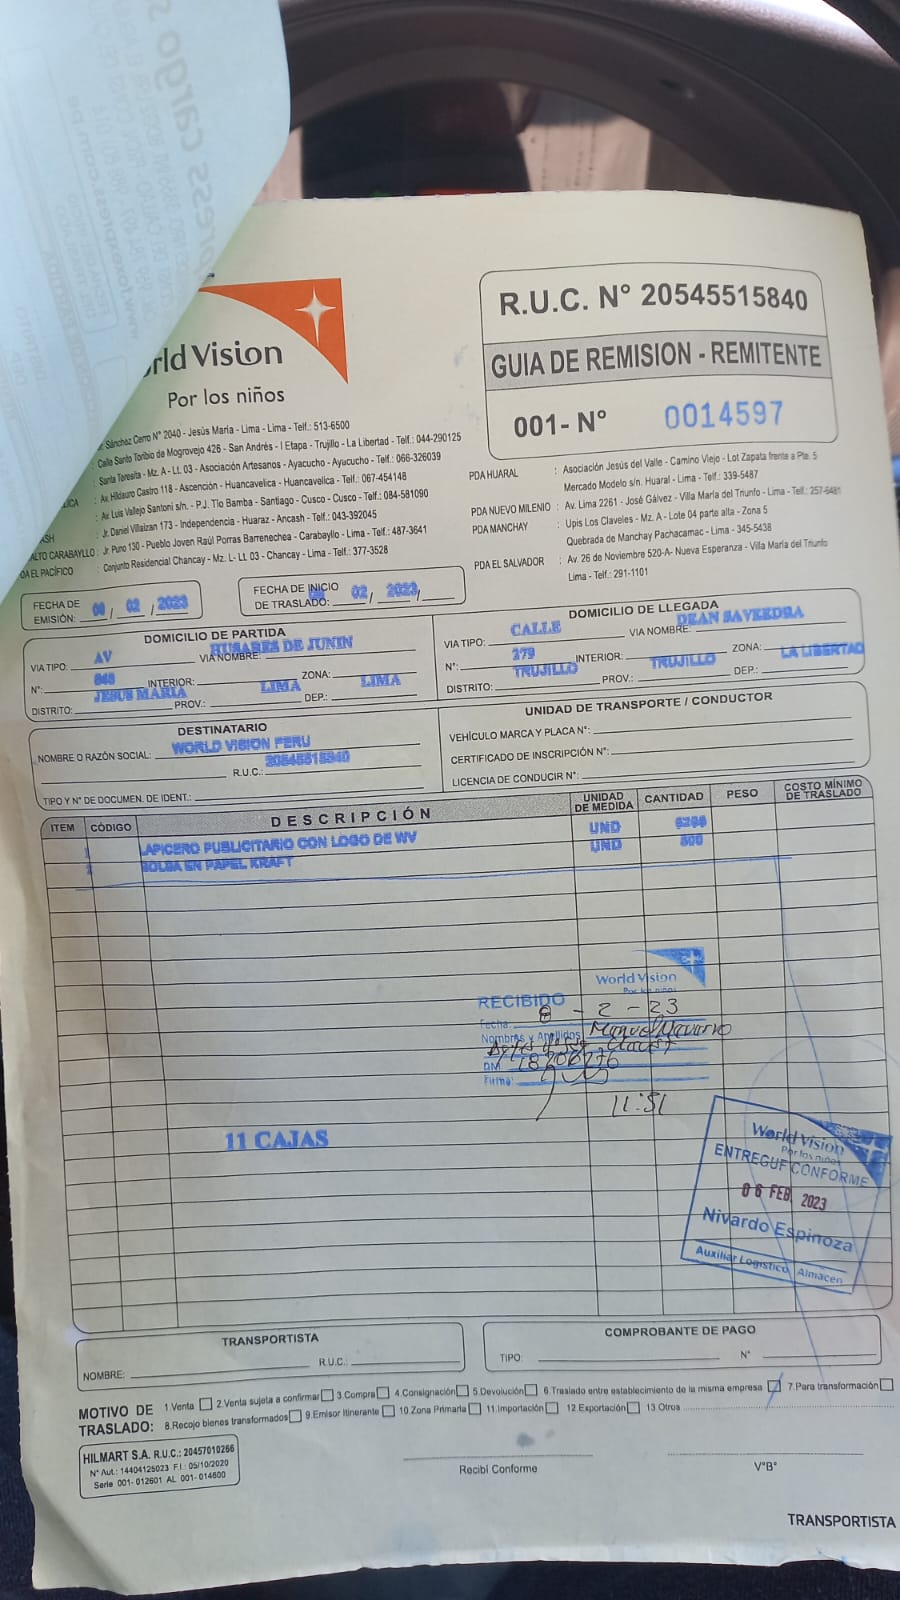 World Vision
Por los niños
R.U.C. N° 20545515840
GUIA DE REMISION - REMITENTE
001- N° 0014597
Sánchez Cerro N° 2040 - Jesús María - Lima - Lima - Telf.: 513-6500
: Calle Santo Toribio de Mogrovejo 426 - San Andrés - I Etapa - Trujillo - La Libertad - Telf.: 044-290125
: Santa Teresita - Mz. A - Lt. 03 - Asociación Artesanos - Ayacucho - Ayucucho - Telf.: 066-326039
: Av. Hildauro Castro 118 - Ascención - Huancavelica - Huancavelica - Telf.: 067-454148
: Av. Luis Vallejo Santoni s/n. - P.J. Tío Bamba - Santiago - Cusco - Cusco - Telf.: 084-581090
: Jr. Daniel Villaizan 173 - Independencia - Huaraz - Ancash - Telf.: 043-392045
ALTO CARABAYLLO : Jr. Puno 130 - Pueblo Joven Raúl Porras Barrenechea - Carabayllo - Lima - Telf.: 487-3641
EL PACÍFICO : Conjunto Residencial Chancay - Mz. L- Lt. 03 - Chancay - Lima - Telf.: 377-3528
PDA HUARAL : Asociación Jesús del Valle - Camino Viejo - Lot Zapata frente a Pte. 5
Mercado Modelo s/n. Huaral - Lima - Telf.: 339-5487
PDA NUEVO MILENIO : Av. Lima 2261 - José Gálvez - Villa María del Triunfo - Lima - Telf.: 257-6481
PDA MANCHAY : Upis Los Claveles - Mz. A - Lote 04 parte alta - Zona 5
Quebrada de Manchay Pachacamac - Lima - 345-5438
PDA EL SALVADOR : Av. 26 de Noviembre 520-A- Nueva Esperanza - Villa María del Triunfo
Lima - Telf.: 291-1101
FECHA DE EMISIÓN: / 02 / 2023
FECHA DE INICIO DE TRASLADO: 02 / 2023
DOMICILIO DE PARTIDA
VIA TIPO: AV VIA NOMBRE: HUSARES DE JUNIN
N°: INTERIOR: ZONA:
DISTRITO: JESUS MARIA PROV.: LIMA DEP.: LIMA
DOMICILIO DE LLEGADA
VIA TIPO: CALLE VIA NOMBRE: DEAN SAVEEDRA
N°: 279 INTERIOR: ZONA:
DISTRITO: TRUJILLO PROV.: TRUJILLO DEP.: LA LIBERTAD
DESTINATARIO
NOMBRE O RAZÓN SOCIAL: WORLD VISION PERU
R.U.C.: 20545515840
TIPO Y N° DE DOCUMEN. DE IDENT.:
UNIDAD DE TRANSPORTE / CONDUCTOR
VEHÍCULO MARCA Y PLACA N°:
CERTIFICADO DE INSCRIPCIÓN N°:
LICENCIA DE CONDUCIR N°:
ITEM CÓDIGO DESCRIPCIÓN UNIDAD DE MEDIDA CANTIDAD PESO COSTO MÍNIMO DE TRASLADO
1 LAPICERO PUBLICITARIO CON LOGO DE WV UND
2 BOLSA EN PAPEL KRAFT UND
World Vision
Por los niños
RECIBIDO
Fecha: 8 - 2 - 23
Nombres y Apellidos Manuel Navarro
DNI
Firma:
11:51
11 CAJAS
World Vision
Por los niños
ENTREGUE CONFORME
06 FEB. 2023
Nivardo Espinoza
Auxiliar Logístico Almacen
TRANSPORTISTA
NOMBRE: R.U.C.:
COMPROBANTE DE PAGO
TIPO: N°
MOTIVO DE TRASLADO:
1 Venta 2.Venta sujeta a confirmar 3.Compra 4.Consignación 5.Devolución 6.Traslado entre establecimiento de la misma empresa 7.Para transformación
8.Recojo bienes transformados 9.Emisor Itinerante 10.Zona Primaria 11.Importación 12.Exportación 13.Otros
HILMART S.A. R.U.C.: 20457010266
N° Aut.: 14404125023 F.I.: 05/10/2020
Serie 001- 012601 AL 001- 014600
Recibí Conforme
V°B°
TRANSPORTISTA